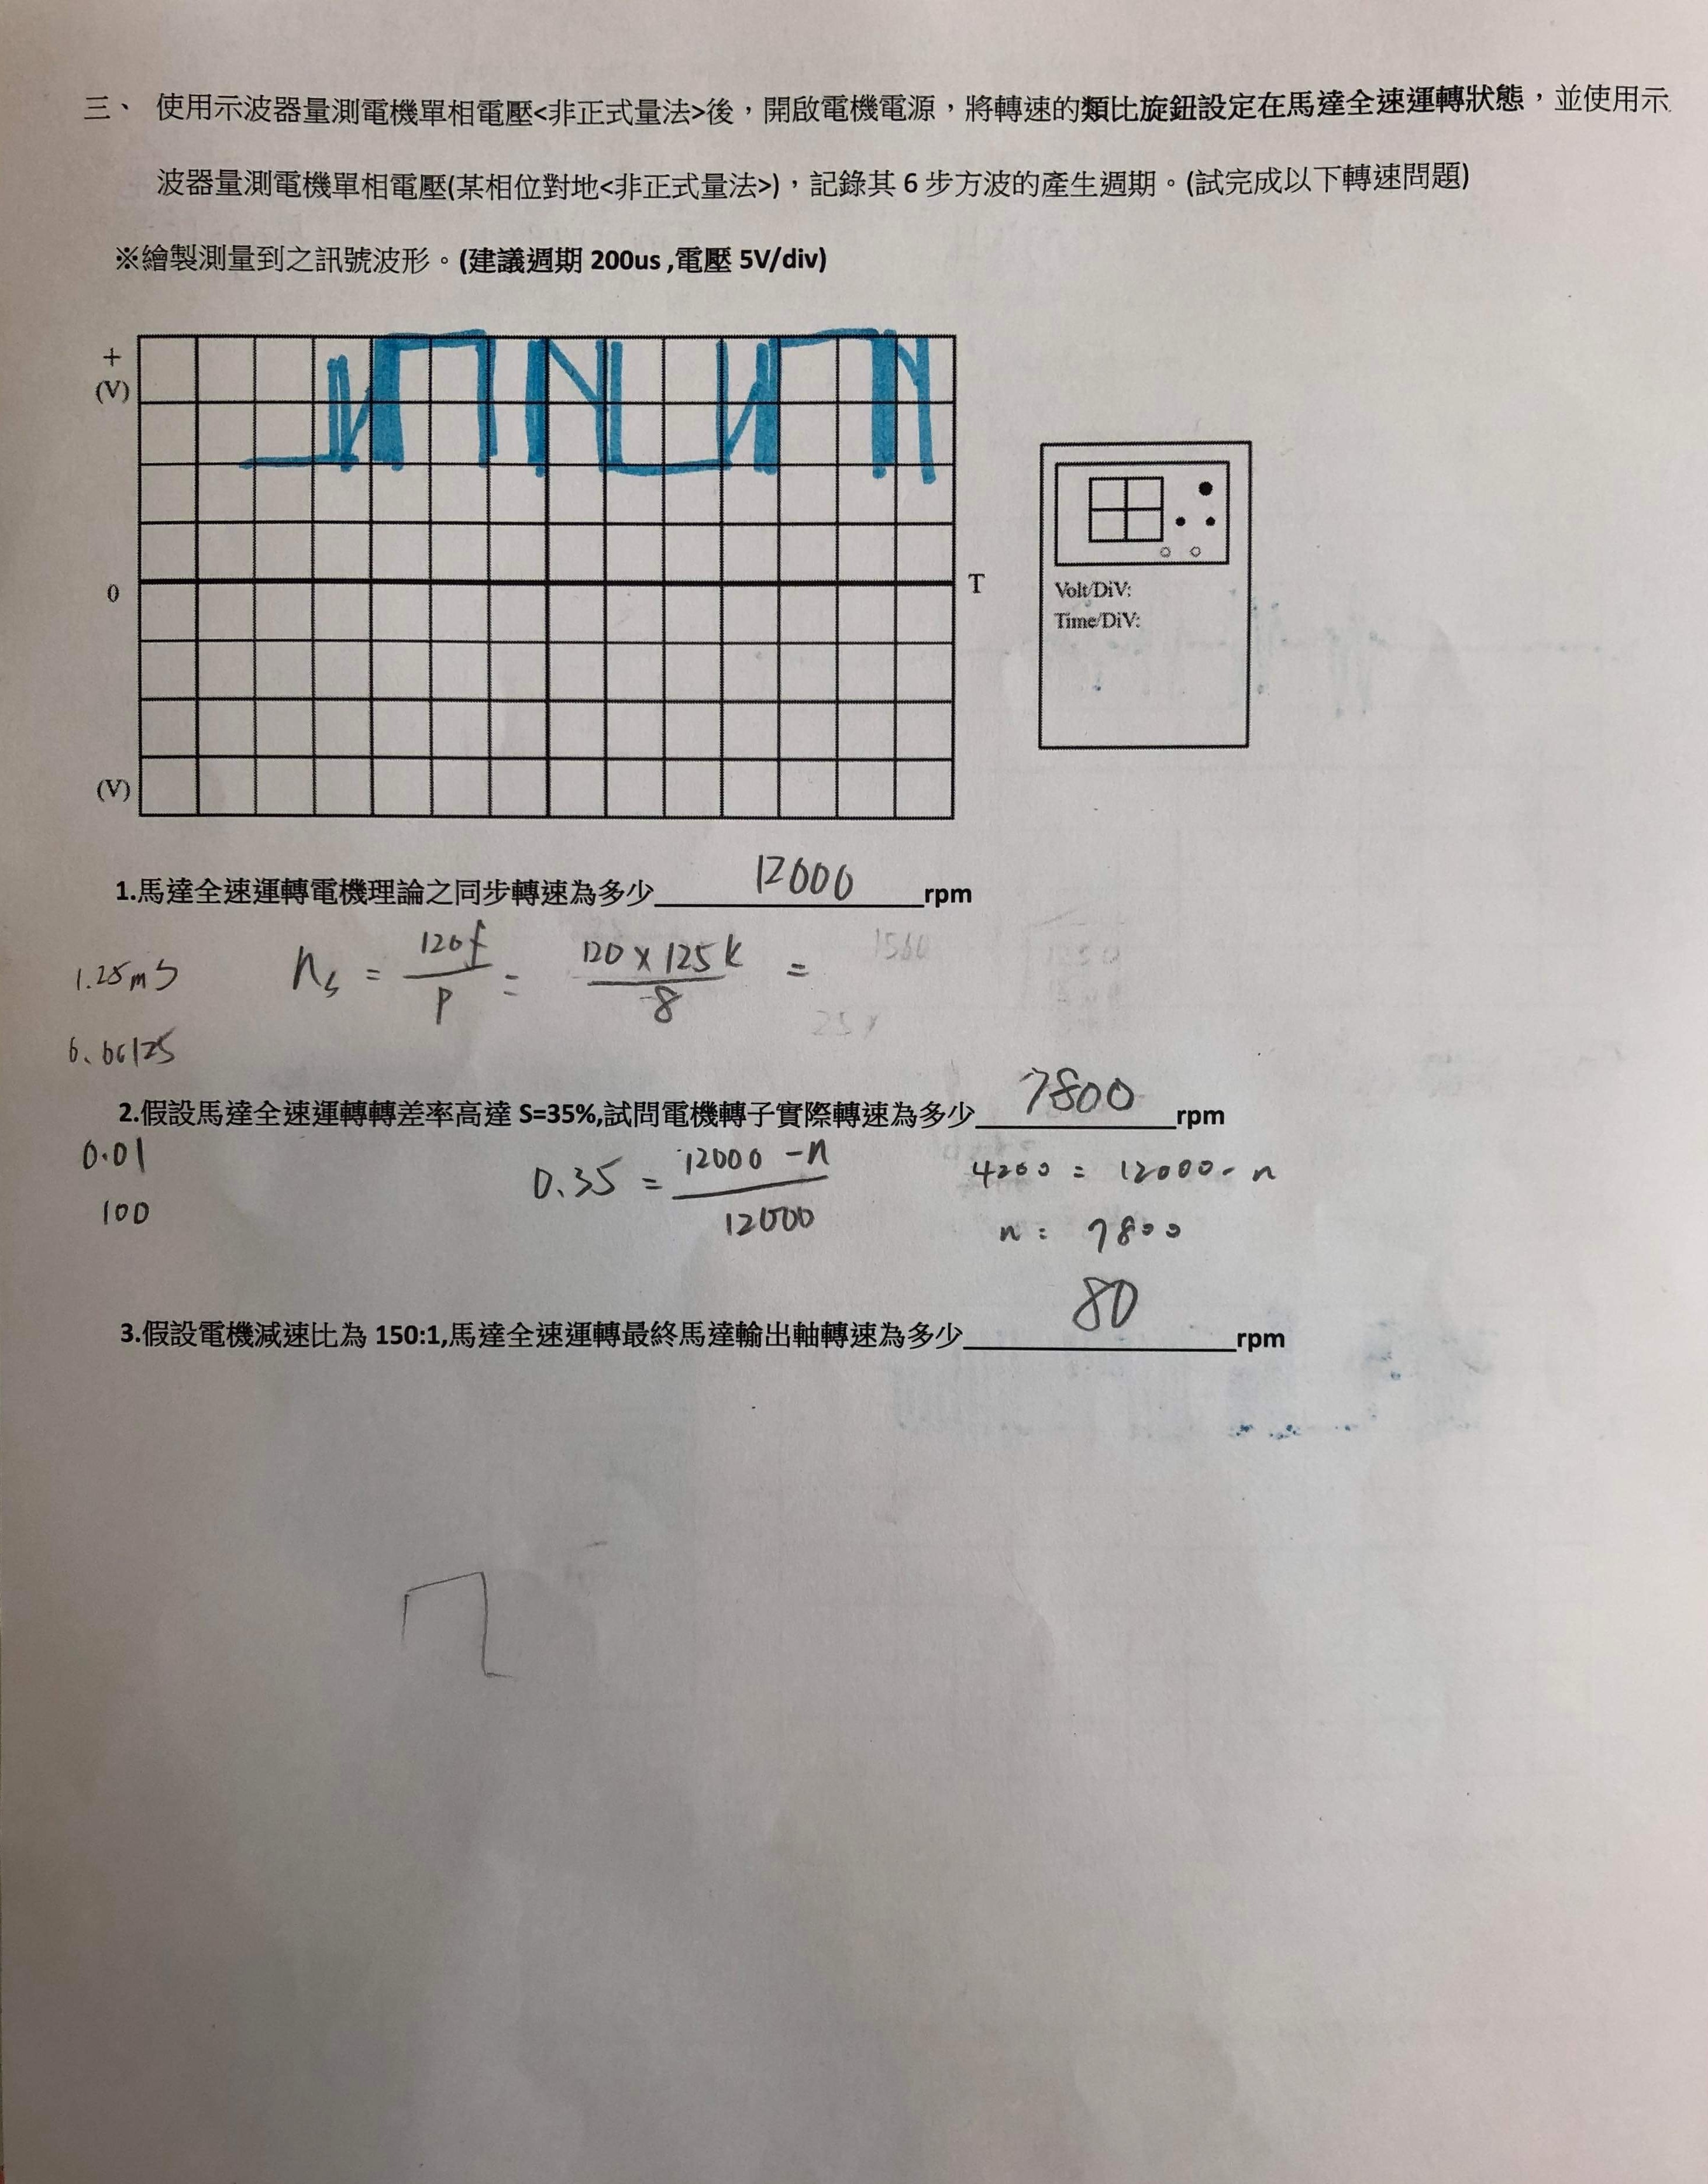 三、 使用示波器量測電機單相電壓<非正式量法>後，開啟電機電源，將轉速的類比旋鈕設定在馬達全速運轉狀態，並使用示
波器量測電機單相電壓(某相位對地<非正式量法>)，記錄其 6 步方波的產生週期。(試完成以下轉速問題)
※繪製測量到之訊號波形。(建議週期 200us ,電壓 5V/div)
+
(V)
0
T
(V)
Volt/DiV:
Time/DiV:
1.馬達全速運轉電機理論之同步轉速為多少 12000 rpm
1.25mS
ns = 120f / P = 120 x 125k / 8 =
2.假設馬達全速運轉轉差率高達 S=35%,試問電機轉子實際轉速為多少 7800 rpm
0.01
100
0.35 = 12000 - n / 12000
4200 = 12000 - n
n = 7800
3.假設電機減速比為 150:1,馬達全速運轉最終馬達輸出軸轉速為多少 80 rpm